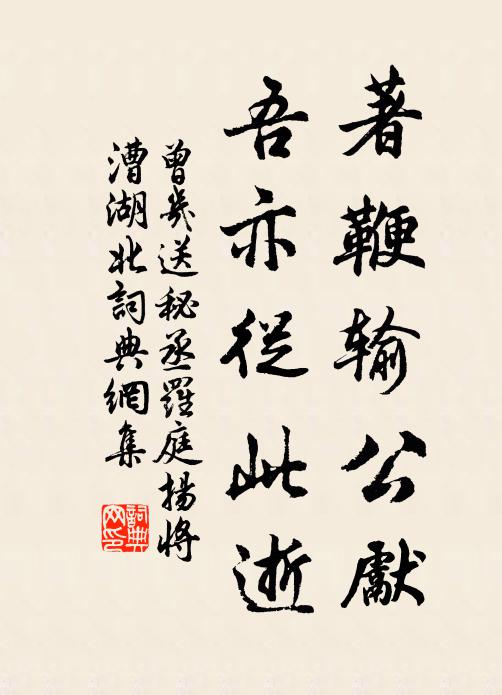 著鞭输公獻
吾亦從此逝
曾幾送秘丞羅庭揚將
漕湖北詞典網集
詞典网印